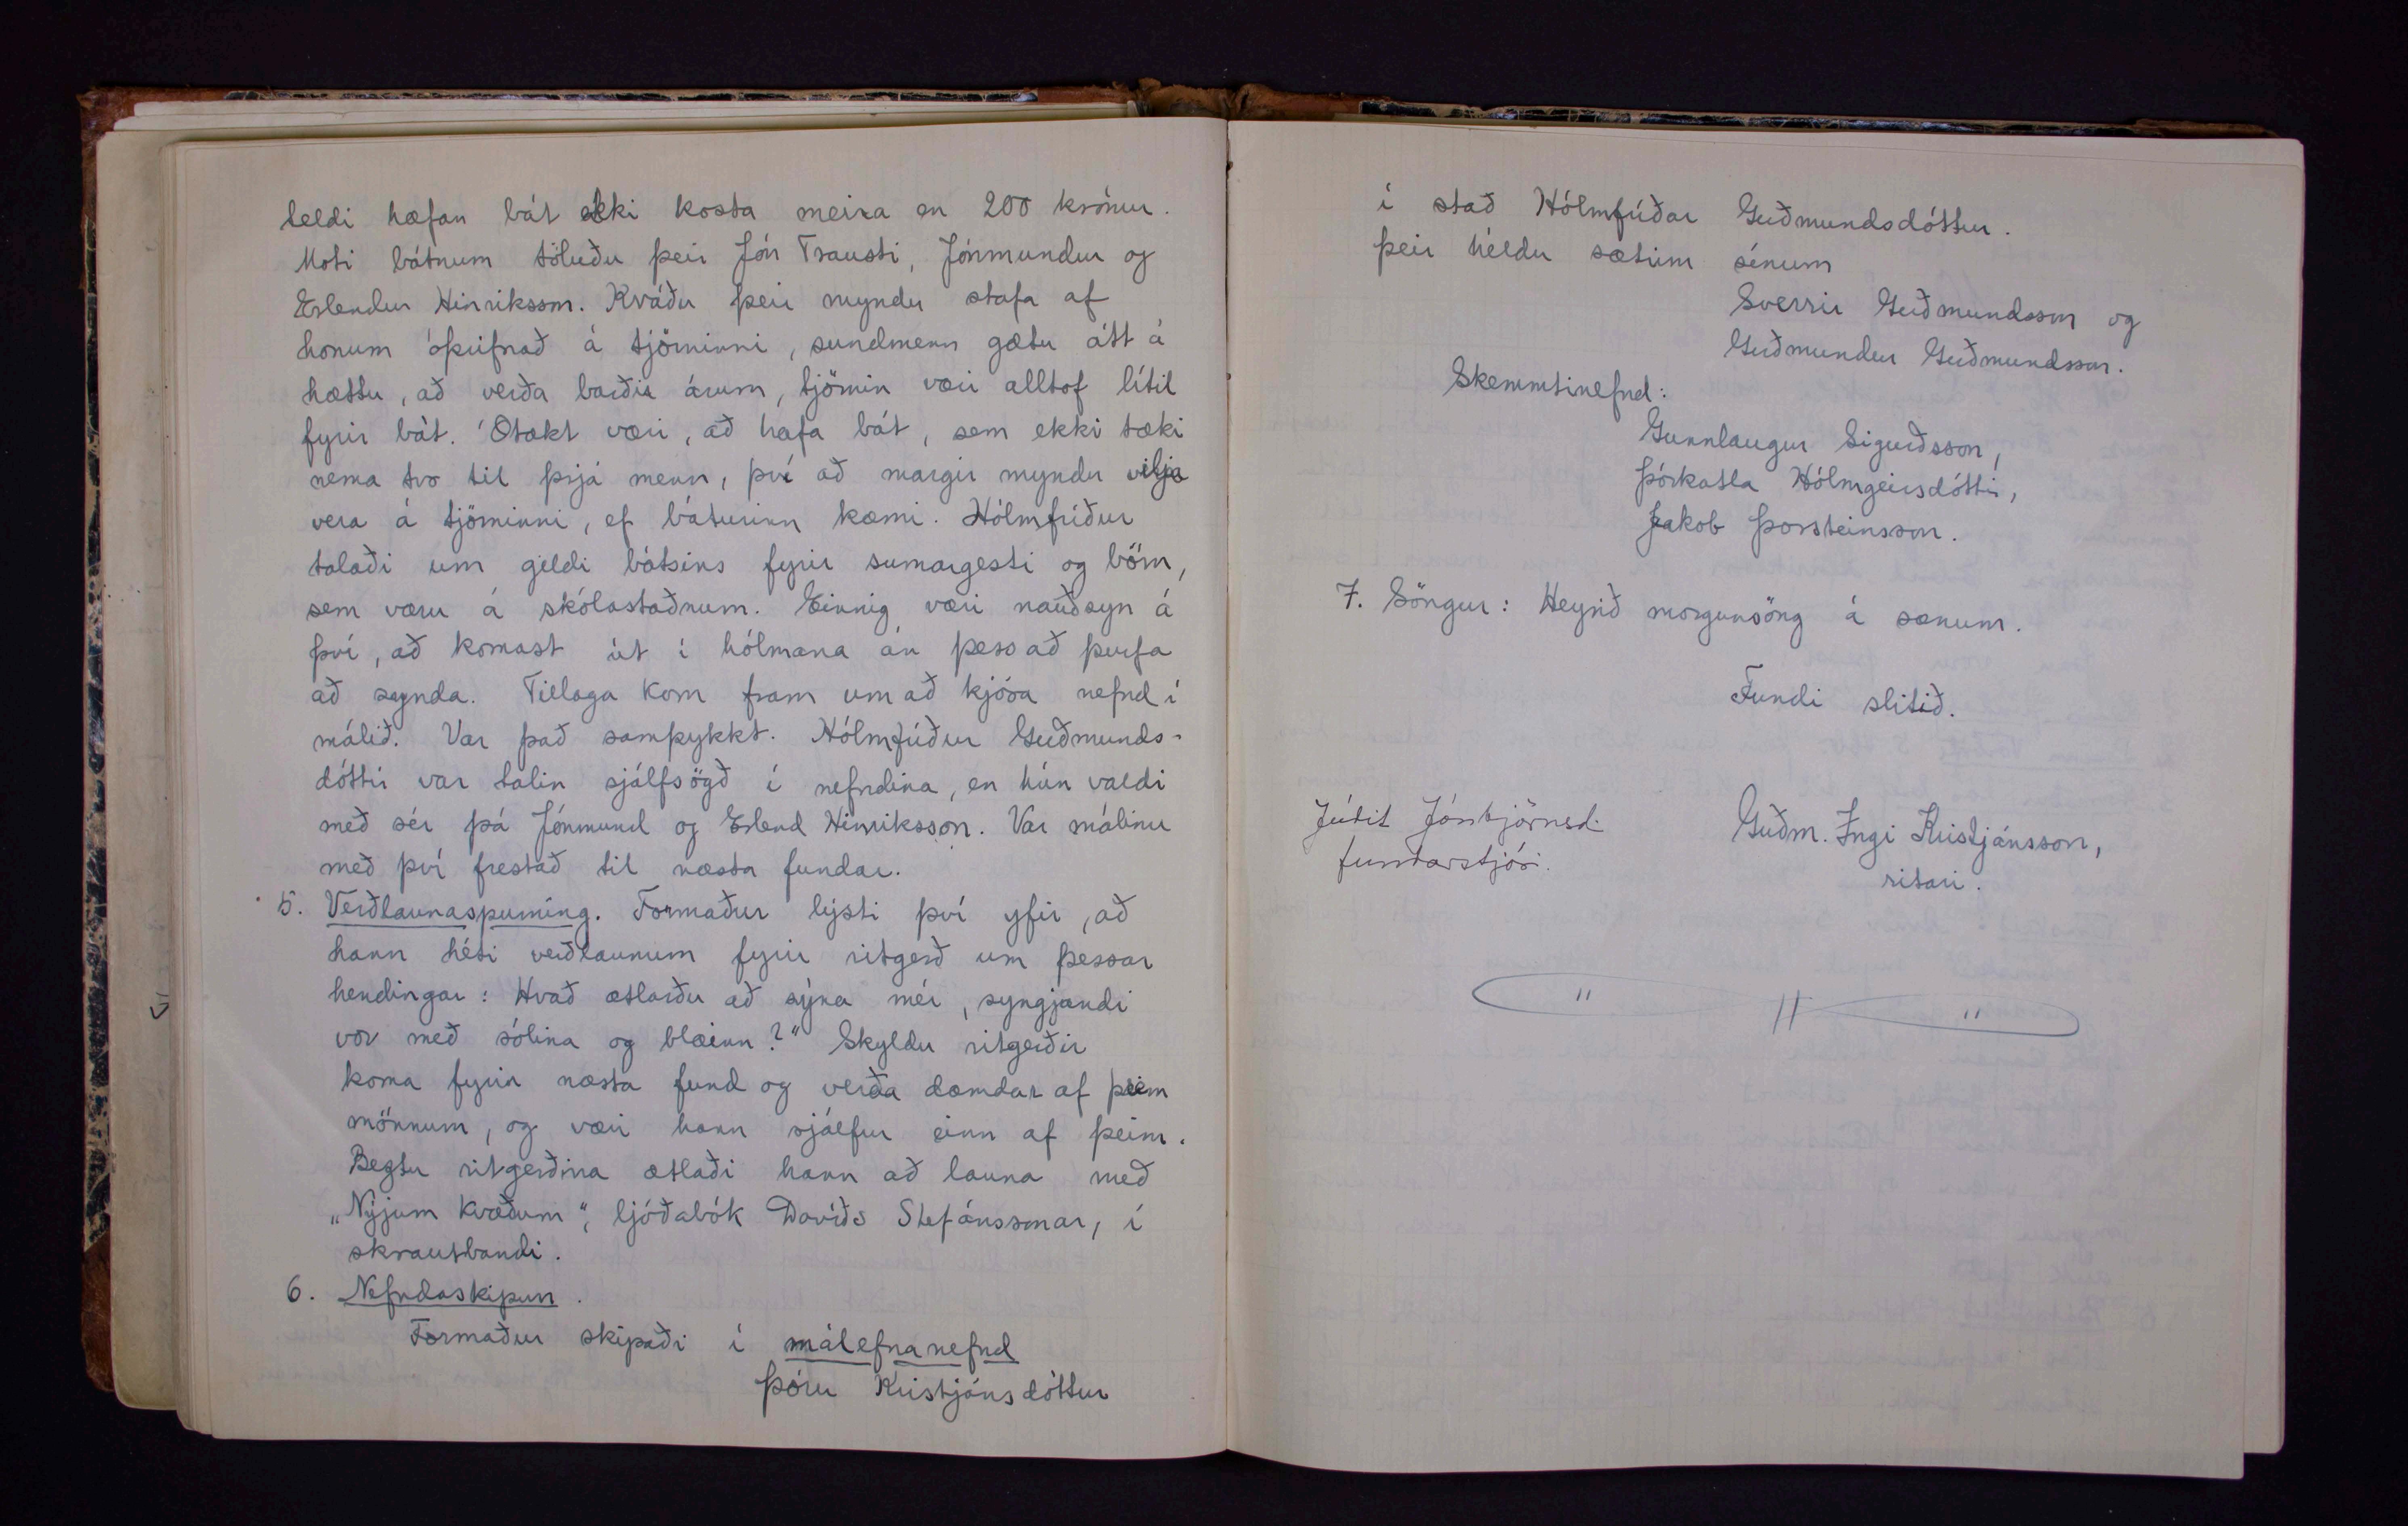 teldi hæfan bát ekki kosta meira en 200 krónur.
Móti bátnum töluðu þeir Jón Trausti, Jónmundur og
Erlendur Hinriksson. Kváðu þeir myndu stafa af
honum óþrifnað á tjörninni, sundmenn gætu átt á
hættu, að verða barðir árum, tjörnin væri alltof lítil
fyrir bát. Ótækt væri, að hafa bát, sem ekki tæki
nema tvo til þrjá menn, því að margir myndu vilja
vera á tjörninni, ef báturinn kæmi. Hólmfríður
talaði um gildi bátsins fyrir sumargesti og börn,
sem væru á skólastaðnum. Einnig væri nauðsyn á
því, að komast út í hólmana án þess að þurfa
að synda. Tillaga kom fram um að kjósa nefnd í
málið. Var það samþykkt. Hólmfríður Guðmunds-
dóttir var talin sjálfsögð í nefndina, en hún valdi
með sér þá Jónmund og Erlend Hinriksson. Var málinu
með því frestað til næsta fundar.
5. Verðlaunaspurning. Formaður lýsti því yfir, að
hann héti verðlaunum fyrir ritgerð um þessar
hendingar: Hvað ætlarðu að sýna mér, syngjandi
vor með sólina og blæinn?" Skyldu ritgerðir
koma fyrir næsta fund og verða dæmdar af þrem
mönnum, og væri hann sjálfur einn af þeim.
Beztu ritgerðina ætlaði hann að launa með
„Nýjum kvæðum", ljóðabók Davíðs Stefánssonar, í
skrautbandi.
6. Nefndaskipun.
Formaður skipaði í málefnanefnd
Þóru Kristjánsdóttur
í stað Hólmfríðar Guðmundsdóttur.
Þeir héldu sætum sínum
Sverrir Guðmundsson og
Guðmundur Guðmundsson.
Skemmtinefnd:
Gunnlaugur Sigurðsson,
Þórkatla Hólmgeirsdóttir,
Jakob Þorsteinsson.
7. Söngur: Heyrið morgunsöng á sænum.
Fundi slitið.
Júdit Jónbjörnsd.
fundarstjóri.
Guðm. Ingi Kristjánsson,
ritari.